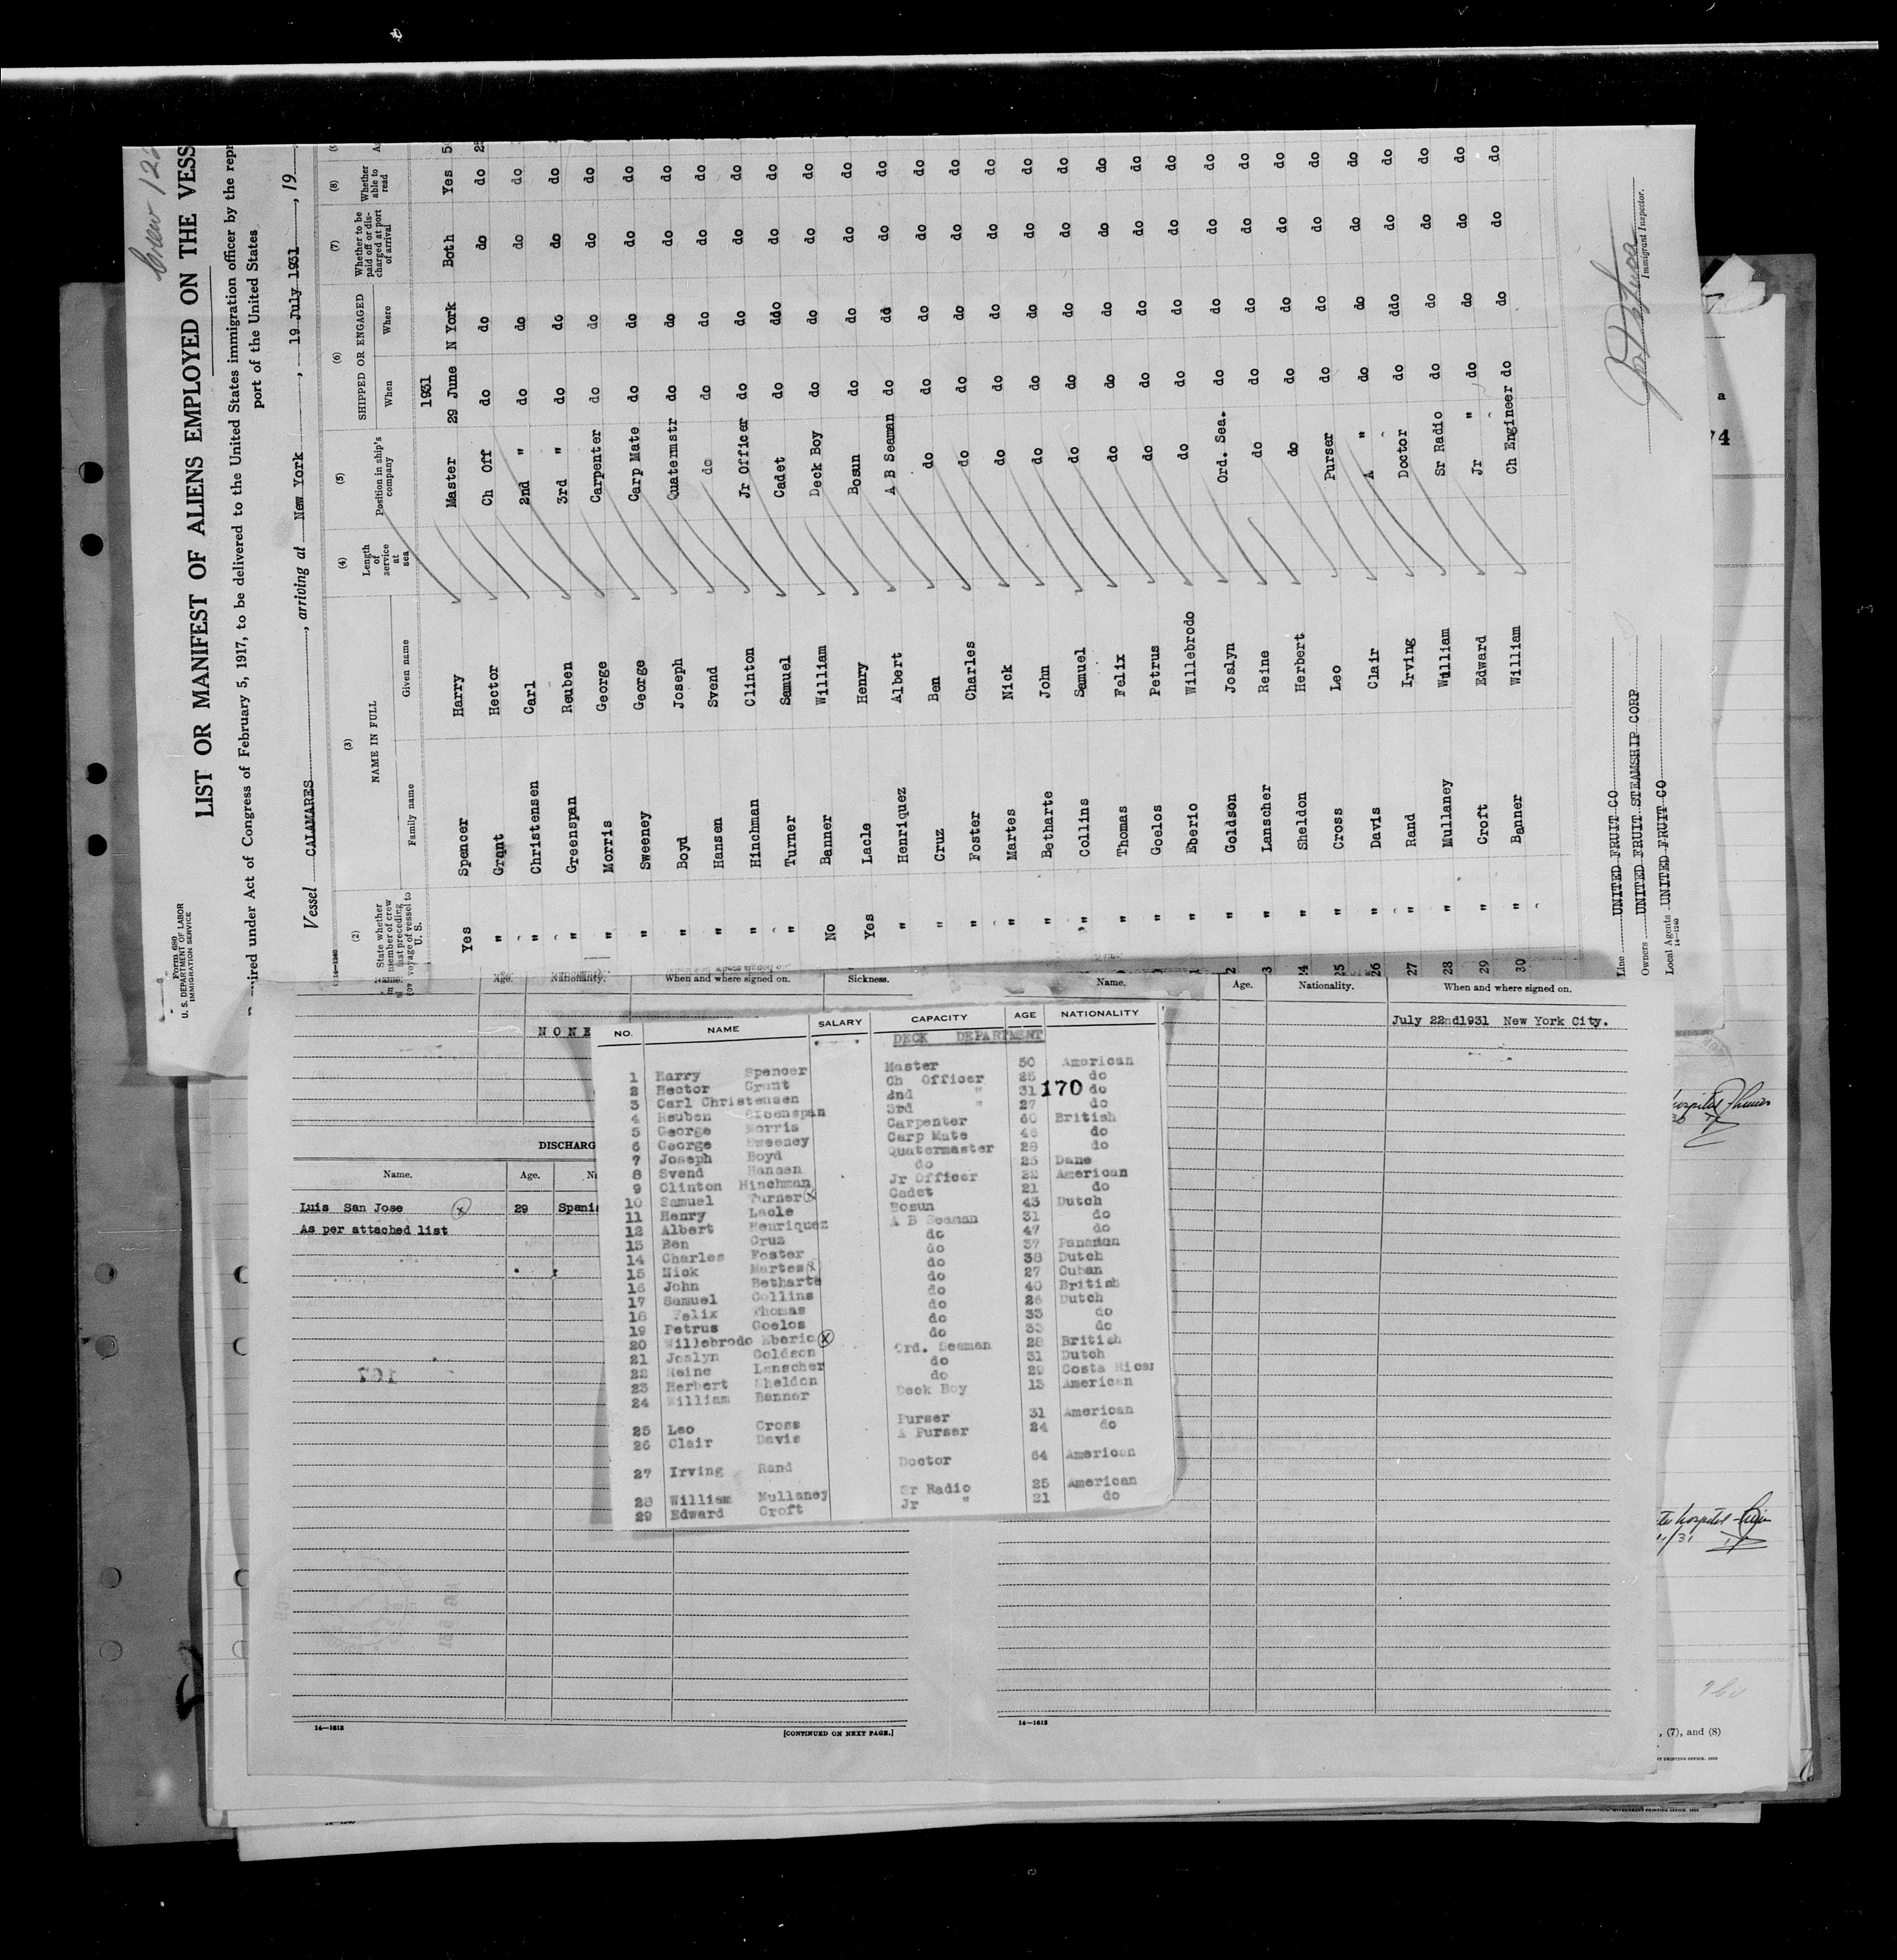 Crew
LIST OR MANIFEST OF ALIENS EMPLOYED ON THE VESS
Form 680
U. S. DEPARTMENT OF LABOR
IMMIGRATION SERVICE
ired under Act of Congress of February 5, 1917, to be delivered to the United States immigration officer by the repr
port of the United States
Vessel CALAMARES, arriving at New York, 19 July 1931, 19
(2) (3) (4) (5) (6) (7) (8)
State whether member of crew last preceding voyage of vessel to U. S. NAME IN FULL Family name Given name Length of service at sea Position in ship's company SHIPPED OR ENGAGED When Where Whether to be paid off or discharged at port of arrival Whether able to read
1931
Yes Spencer Harry Master 29 June N York Both Yes 50
" Grant Hector Ch Off do do do do 25
" Christensen Carl 2nd " do do do do
" Greenspan Reuben 3rd " do do do do
" Morris George Carpenter do do do do
" Sweeney George Carp Mate do do do do
" Boyd Joseph Quatermstr do do do do
" Hansen Svend do do do do do
" Hinchman Clinton Jr Officer do do do do
" Turner Samuel Cadet do ddo do do
No Banner William Deck Boy do do do do
Yes Lacle Henry Bosun do do do do
" Henriquez Albert A B Seaman do do do do
" Cruz Ben do do do do do
" Foster Charles do do do do do
" Martes Nick do do do do do
" Betharte John do do do do do
" Collins Samuel do do do do do
" Thomas Felix do do do do do
" Goelos Petrus do do do do do
" Eberio Willebrodo do do do do do
2 " Goldson Joslyn Ord. Sea. do do do do
3 " Lanscher Reine do do do do do
24 " Sheldon Herbert do do do do do
25 " Cross Leo Purser do do do do
26 " Davis Clair A " do do do do
27 " Rand Irving Doctor do ddo do do
28 " Mullaney William Sr Radio do do do do
29 " Croft Edward Jr " do do do do
30 " Banner William Ch Engineer do do do do
Line UNITED FRUIT CO
Owners UNITED FRUIT STEAMSHIP CORP
Local Agents UNITED FRUIT CO
14—1240
Immigrant Inspector.
Name. Age. Nationality. When and where signed on. Sickness.
NONE
Name. Age. Nationality. When and where signed on.
July 22nd1931 New York City.
DISCHARG
Name. Age. N
Luis San Jose X 29 Spani
As per attached list
167
NO. NAME SALARY CAPACITY AGE NATIONALITY
DECK DEPARTMENT
1 Harry Spencer Master 50 American
2 Hector Grant Ch Officer 25 do
3 Carl Christensen 2nd " 31 do
170
4 Reuben Greenspan 3rd " 27 do
5 George Morris Carpenter 60 British
6 George Sweeney Carp Mate 46 do
7 Joseph Boyd Quatermaster 28 do
8 Svend Hansen do 25 Dane
9 Clinton Hinchman Jr Officer 22 American
10 Samuel Turner X Cadet 21 do
11 Henry Lacle Bosun 43 Dutch
12 Albert Henriquez A B Seaman 31 do
13 Ben Cruz do 47 do
14 Charles Foster do 37 Panaman
15 Nick Martes X do 38 Dutch
16 John Betharte do 27 Cuban
17 Samuel Collins do 40 British
18 Felix Thomas do 26 Dutch
19 Petrus Goelos do 33 do
20 Willebrodo Eberio X do 33 do
21 Joslyn Goldson Ord. Seaman 28 British
22 Reine Lanscher do 31 Dutch
23 Herbert Sheldon do 29 Costa Rican
24 William Banner Deck Boy 15 American
25 Leo Cross Purser 31 American
26 Clair Davis A Purser 24 do
27 Irving Rand Doctor 64 American
28 William Mullaney Sr Radio 25 American
29 Edward Croft Jr " 21 do
14—1613
[CONTINUED ON NEXT PAGE.]
14—1613
a
74
hospital
hospital
, (7), and (8)